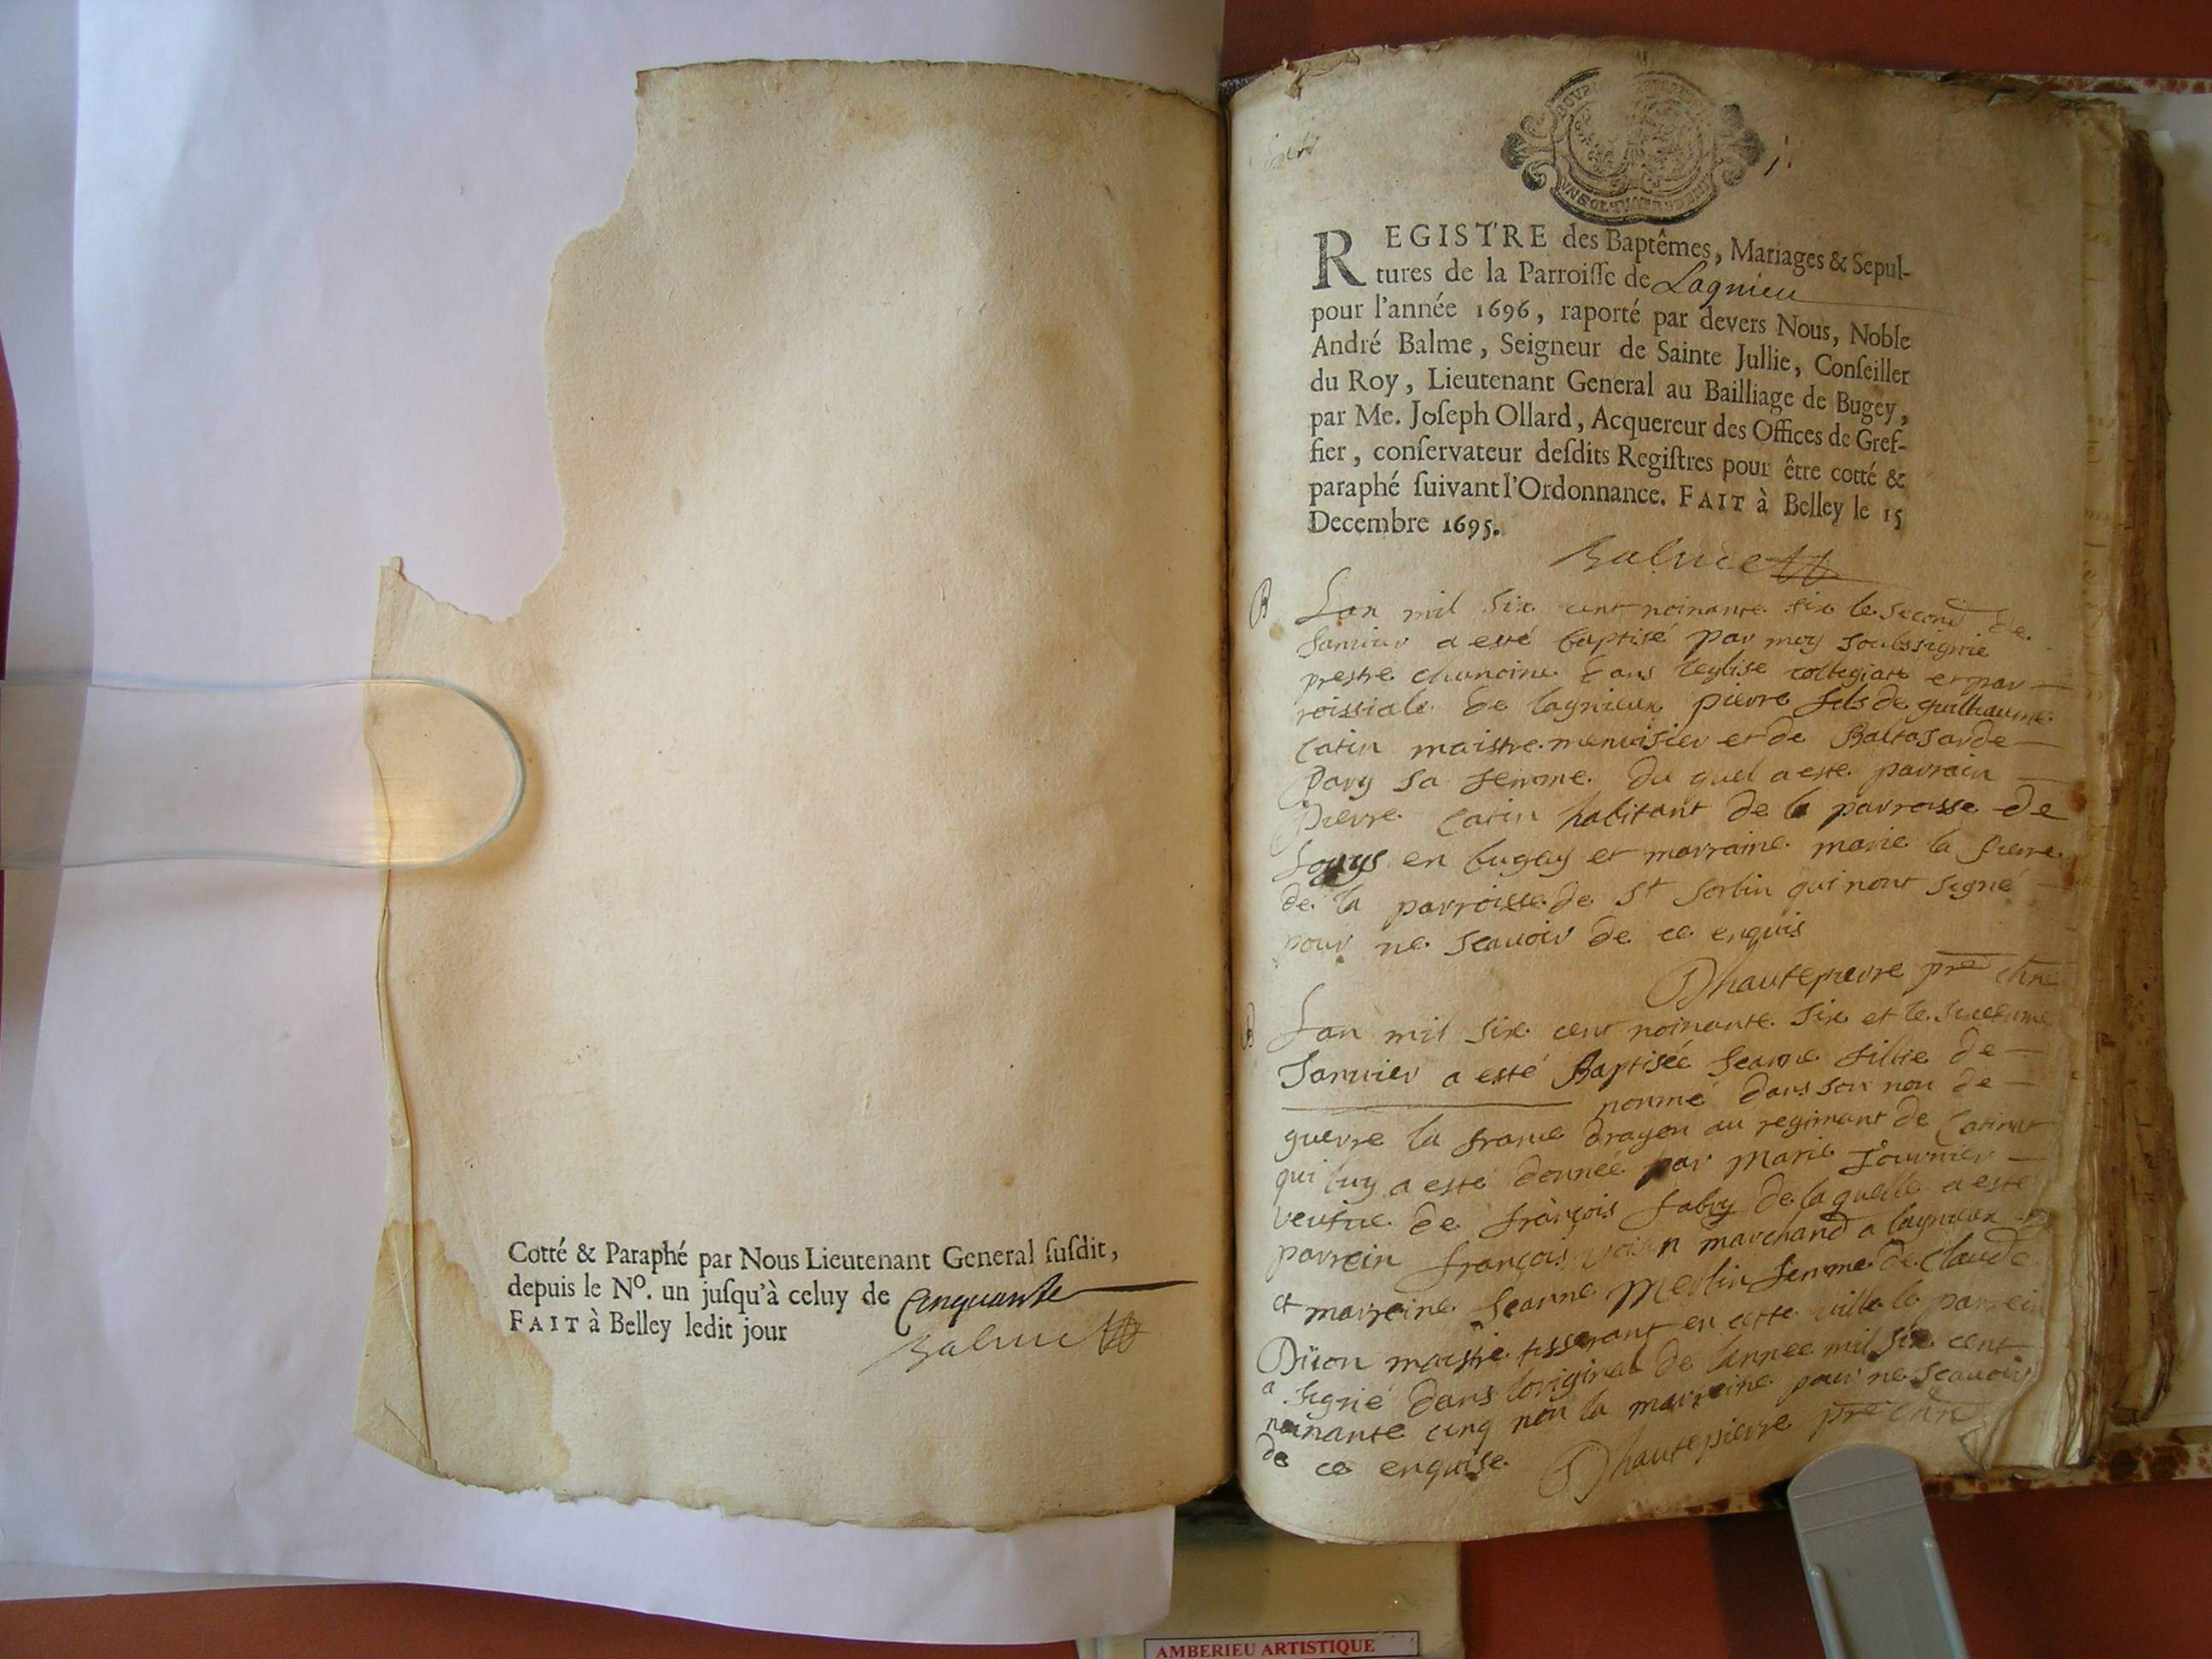 Cotté & Paraphé par Nous Lieutenant General ſuſdit,
depuis le No. un juſqu'à celuy de Cinquante
FAIT à Belley ledit jour
Balme
REGISTRE des Baptêmes, Mariages & Sepul-
tures de la Parroiſſe de Lagnieu
pour l'année 1696, raporté par devers Nous, Noble
André Balme, Seigneur de Sainte Jullie, Conſeiller
du Roy, Lieutenant General au Bailliage de Bugey,
par Me. Joſeph Ollard, Acquereur des Offices de Gref-
fier, conſervateur deſdits Regiſtres pour être cotté &
paraphé ſuivant l'Ordonnance. FAIT à Belley le 15
Decembre 1695.
Balme
B Lan mil six cent noinante six le second de
Janvier a esté baptisé par moy soubssignié
prestre chanoine dans leglise collegiate et par
roissiale de lagnieux pierre fils de guilliaume
Catin maistre menuisier et de Baltasarde
Pary sa femme du quel a este parrain
Pierre Catin habitant de la parroisse de
en bugey et marraine marie la pierre
de la parroisse de St Sorlin qui nont signé
pour ne scavoir de ce enquis
Dhautepierre pre chne
B Lan mil six cent noinante six et le
Janvier a esté Baptisée Jeanne fillie de
nommé dans son non de
guerre la france dragon au regimant de Catinat
qui luy a esté donnée par Marie Fournier
veufue de françois fabry de laquelle a esté
parrein françois marchand a lagnieux
et marreine Jeanne Merlin femme de Claude
Dijon maistre tisserant en cette ville le parrein
a signé dans loriginal de lannee mil six cent
noinante cinq non la marreine pour ne scavoir
de ce enquise Dhautepierre pre chne
AMBERIEU ARTISTIQUE